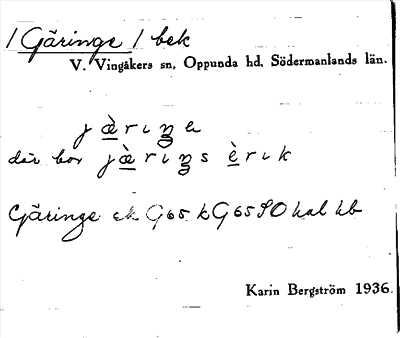 / Gäringe / bek
V. Vingåkers sn, Oppunda hd, Södermanlands län.
j æ̀ r ı ŋ e
där bor jæ̀ r ı ŋ s è r ı k
Gäringe ek G65 k G65 SO hal kb
Karin Bergström 1936.